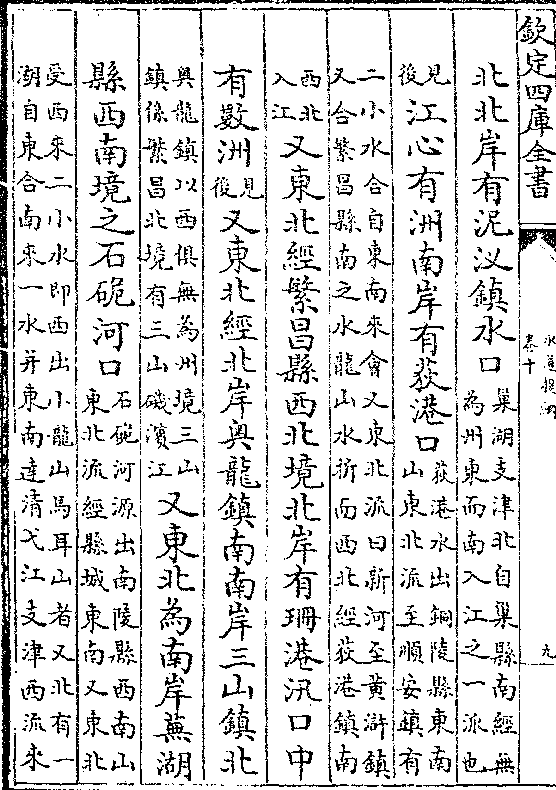 欽定四庫全書
水道提綱
卷十
九
北北岸有泥汊鎮水口巢湖支津北自巢縣南經無
為州東而南入江之一派也
見後江心有洲南岸有荻港口荻港水出銅陵縣東南
山東北流至順安鎮有
二小水合自東南來會又東北流曰新河至黃滸鎮
又合繁昌縣南之水龍山水折而西北經荻港鎮南
西北入江又東北經繁昌縣西北境北岸有珊港汛口中
有數洲見後又東北經北岸奧龍鎮南南岸三山鎮北
奧龍鎮以西俱無為州境三山
鎮係繁昌北境有三山磯濱江又東北為南岸蕪湖
縣西南境之石硊河口石硊河源出南陵縣西南山
東北流經縣城東南又東北
受西來二小水即西出小龍山馬耳山者又北有一
湖自東合南來一水并東南達清弋江支津西流來